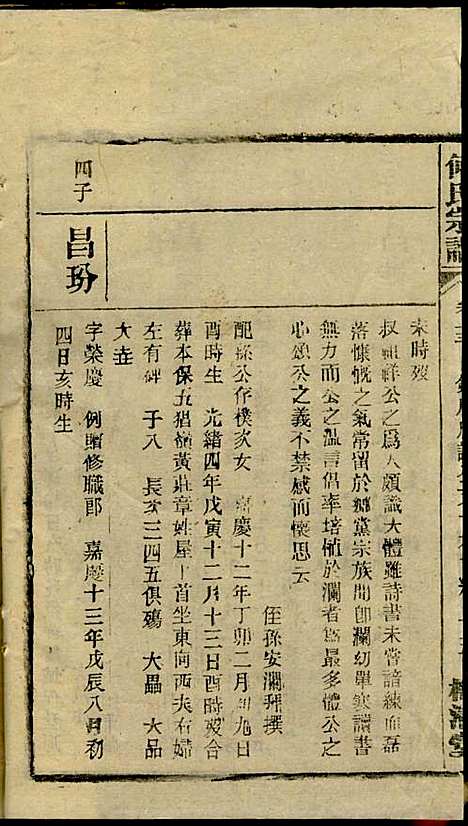 氏宗譜
未時歿
叔祖祥公之爲人頗識大體雖詩書未嘗諳練而磊
落慷慨之氣常留於鄉黨宗族間卽瀾幼單寒讀書
無力而公之溫言倡率培植於瀾者最多樵公之
心頌公之義不禁感而懷思云
侄孫安瀾拜撰
配孫公存樸次女 嘉慶十二年丁卯二月初九日
酉時生 光緒四年戊寅十二月十三日酉時歿合
葬本保五猖嶺黃莊章姓屋上首坐東向西夫右婦
左有碑 子八 長次三四五俱殤 大昷 大品
大垚
四子
昌玢
字榮慶 例贈修職郎 嘉慶十三年戊辰八月初
四日亥時生